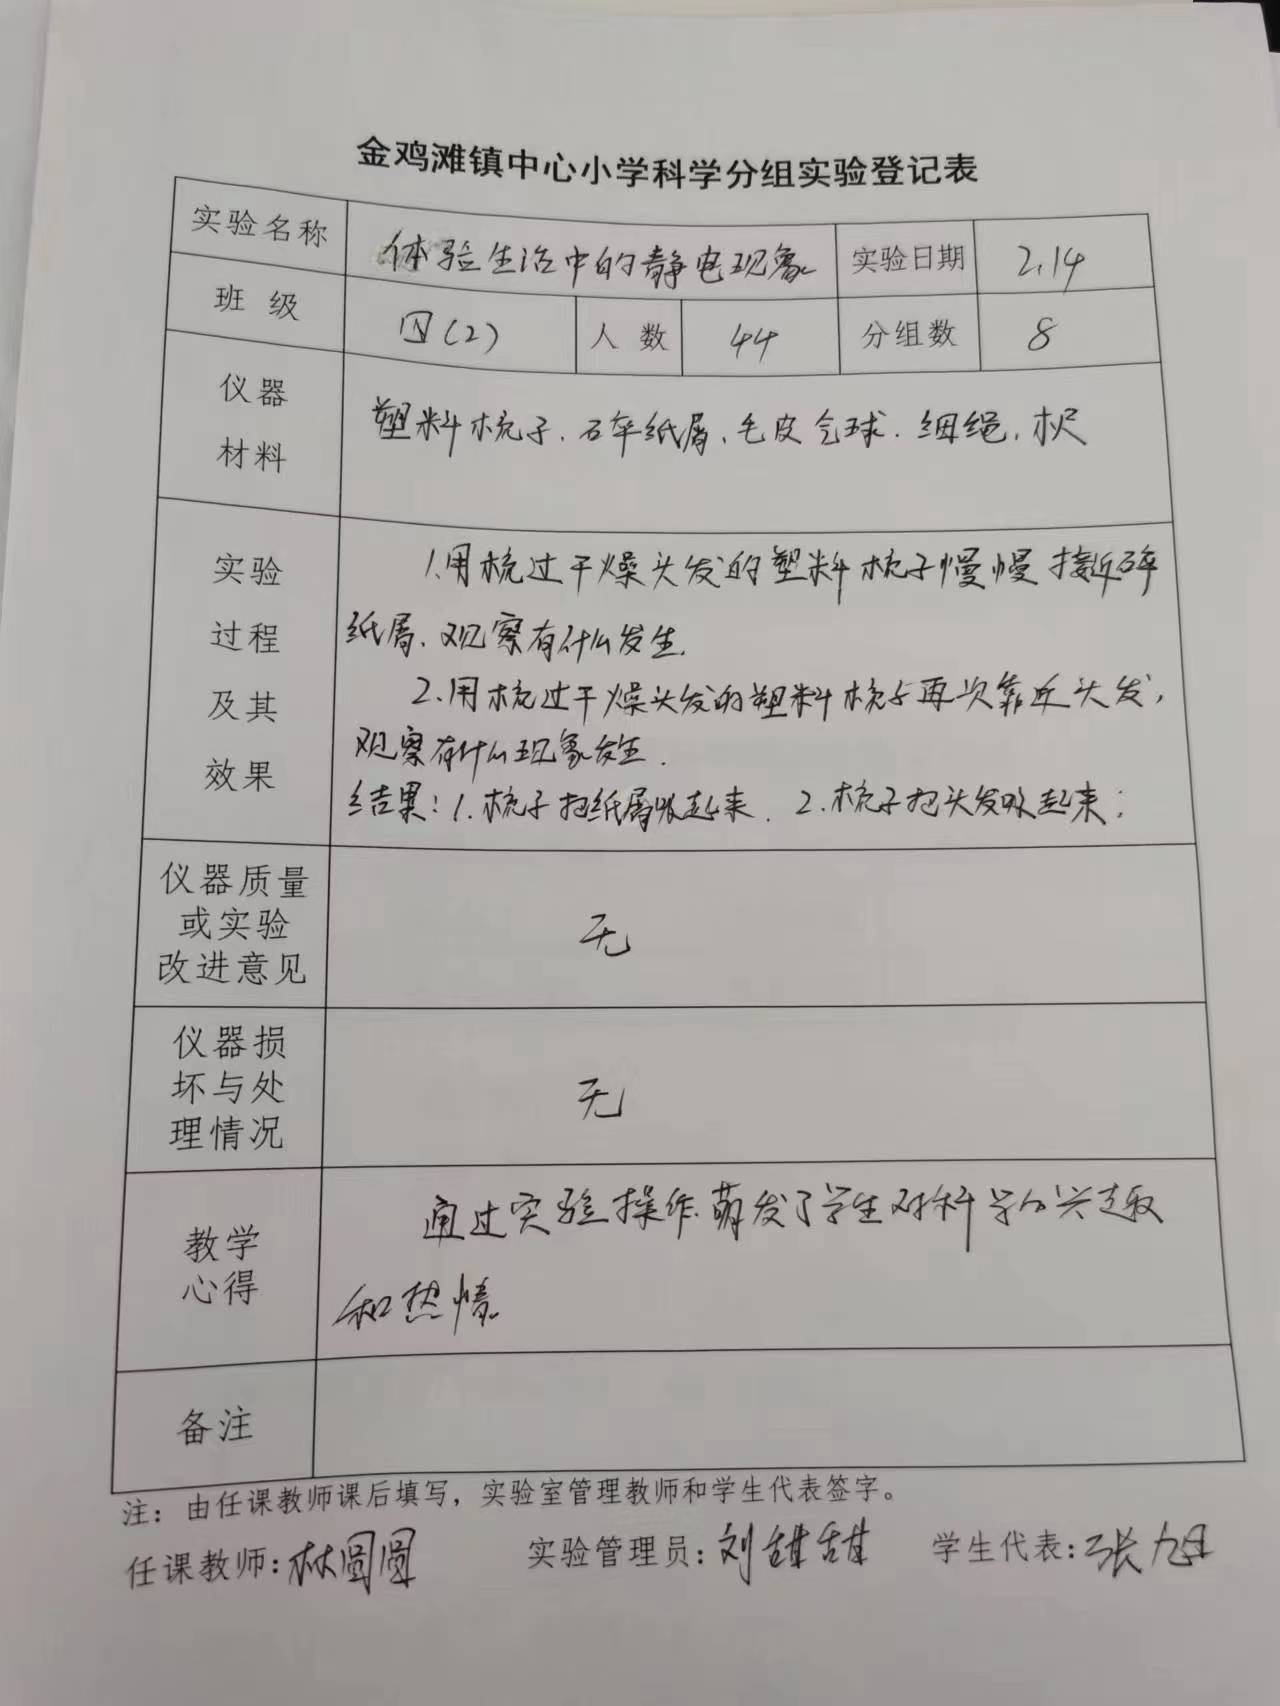 金鸡滩镇中心小学科学分组实验登记表
实验名称 体验生活中的静电现象 实验日期 2.14
班级 四(2) 人数 44 分组数 8
仪器
材料
塑料梳子、碎纸屑、毛皮气球.细绳.木尺
实验
过程
及其
效果
1.用梳过干燥头发的塑料梳子慢慢接近碎
纸屑、观察有什么发生.
2.用梳过干燥头发的塑料梳子再次靠近头发,
观察有什么现象发生.
结果:1.梳子把纸屑吸起来. 2.梳子把头发吸起来;
仪器质量
或实验
改进意见
无
仪器损
坏与处
理情况
无
教学
心得
通过实验操作.萌发了学生对科学的兴趣
和热情.
备注
注：由任课教师课后填写，实验室管理教师和学生代表签字。
任课教师:林圆圆 实验管理员:刘甜甜 学生代表:张旭